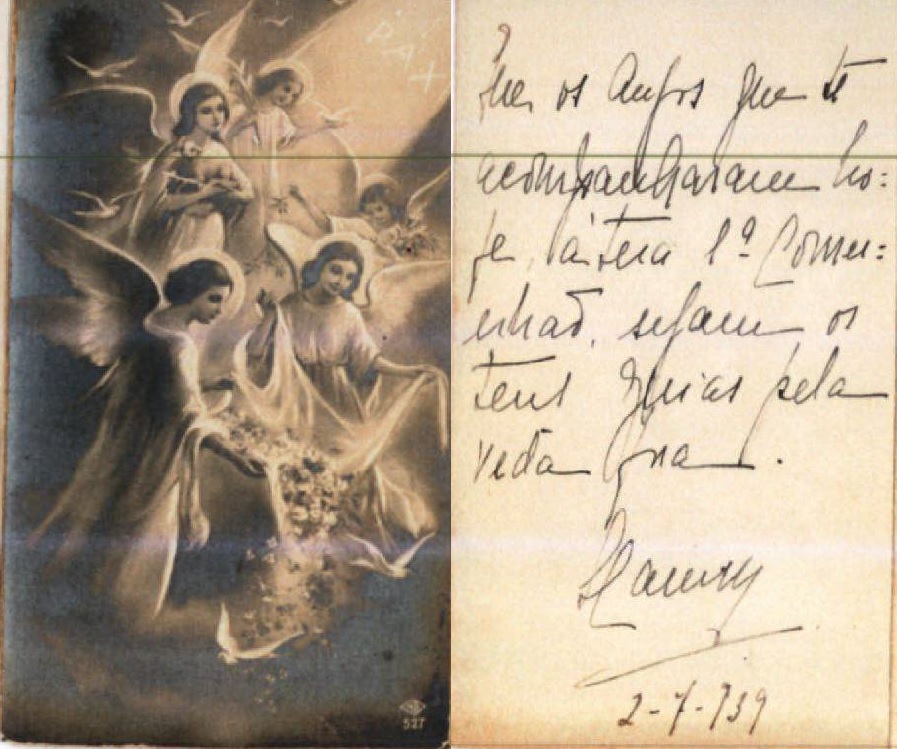 PAX
527
Que os Anjos que te
acompanharam ho=
je, à tua 1ª Comu=
nhão, sejam os
teus guias pela
vida fora.
2-7-939